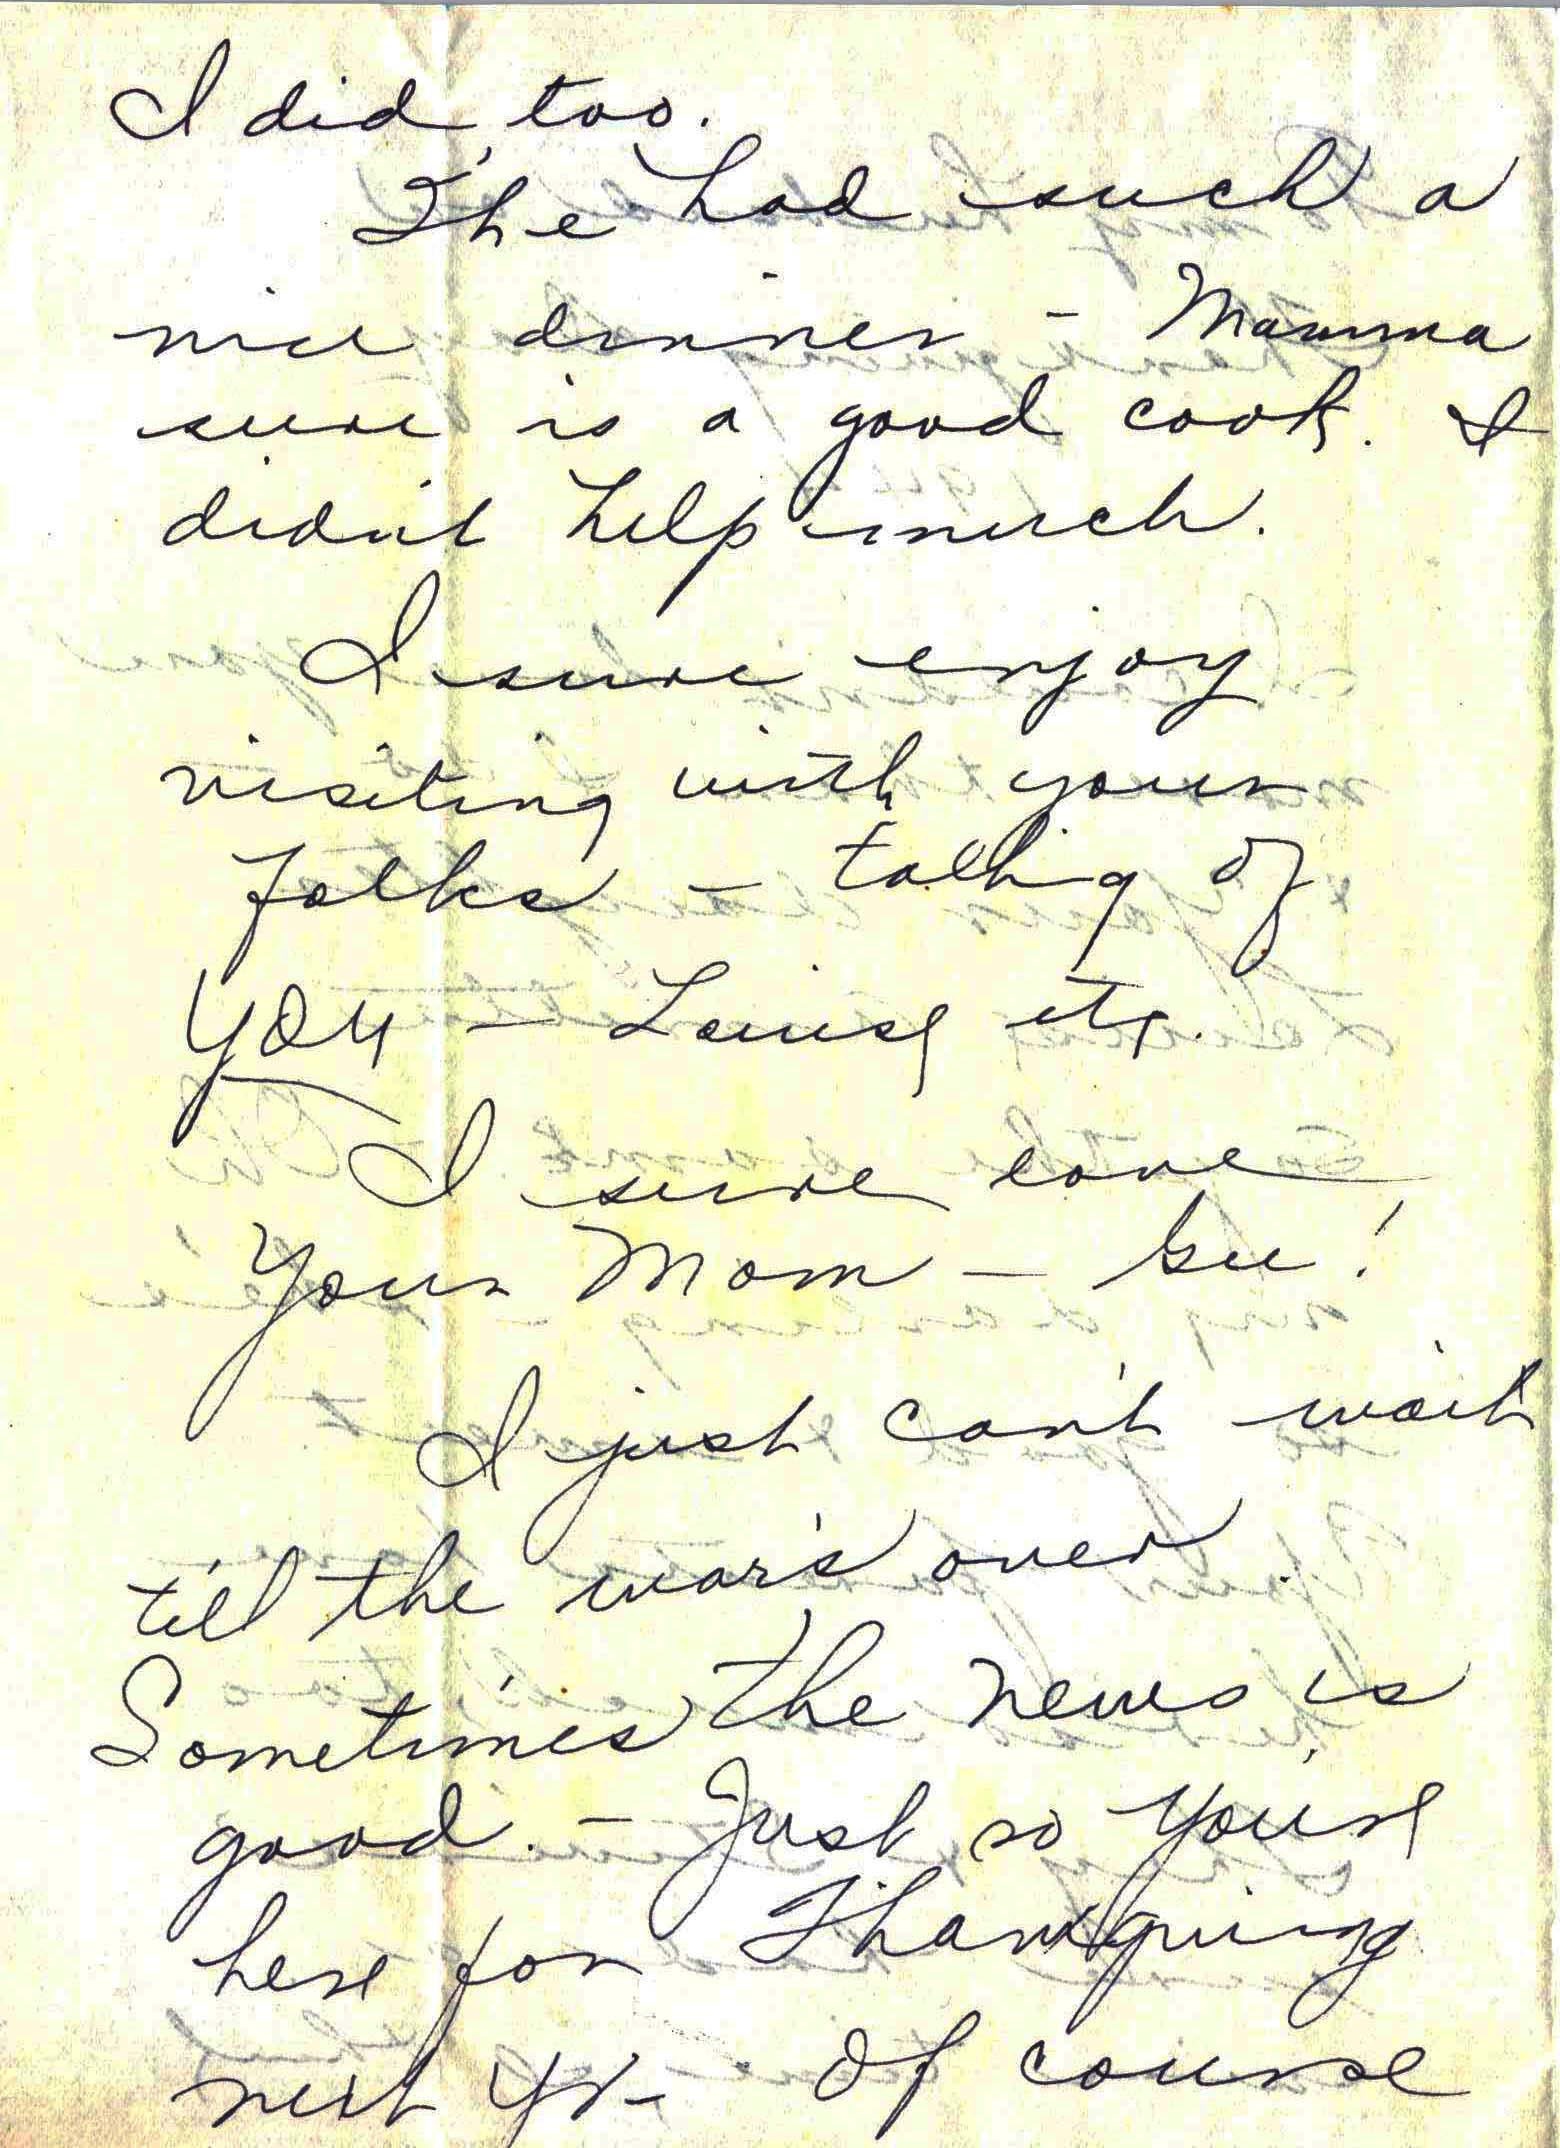 I did, too.
The had such a
nice dinner - Mamma
sure is a good cook. I
didn't help much.
I sure enjoy
visiting with your
folks - talking of
YOU - Louise etc.
I sure love
your Mom - Gee!
I just can't wait
till the war's over.
Sometimes the news is
good. - Just so you're
here for Thanksgiving
next yr - Of course